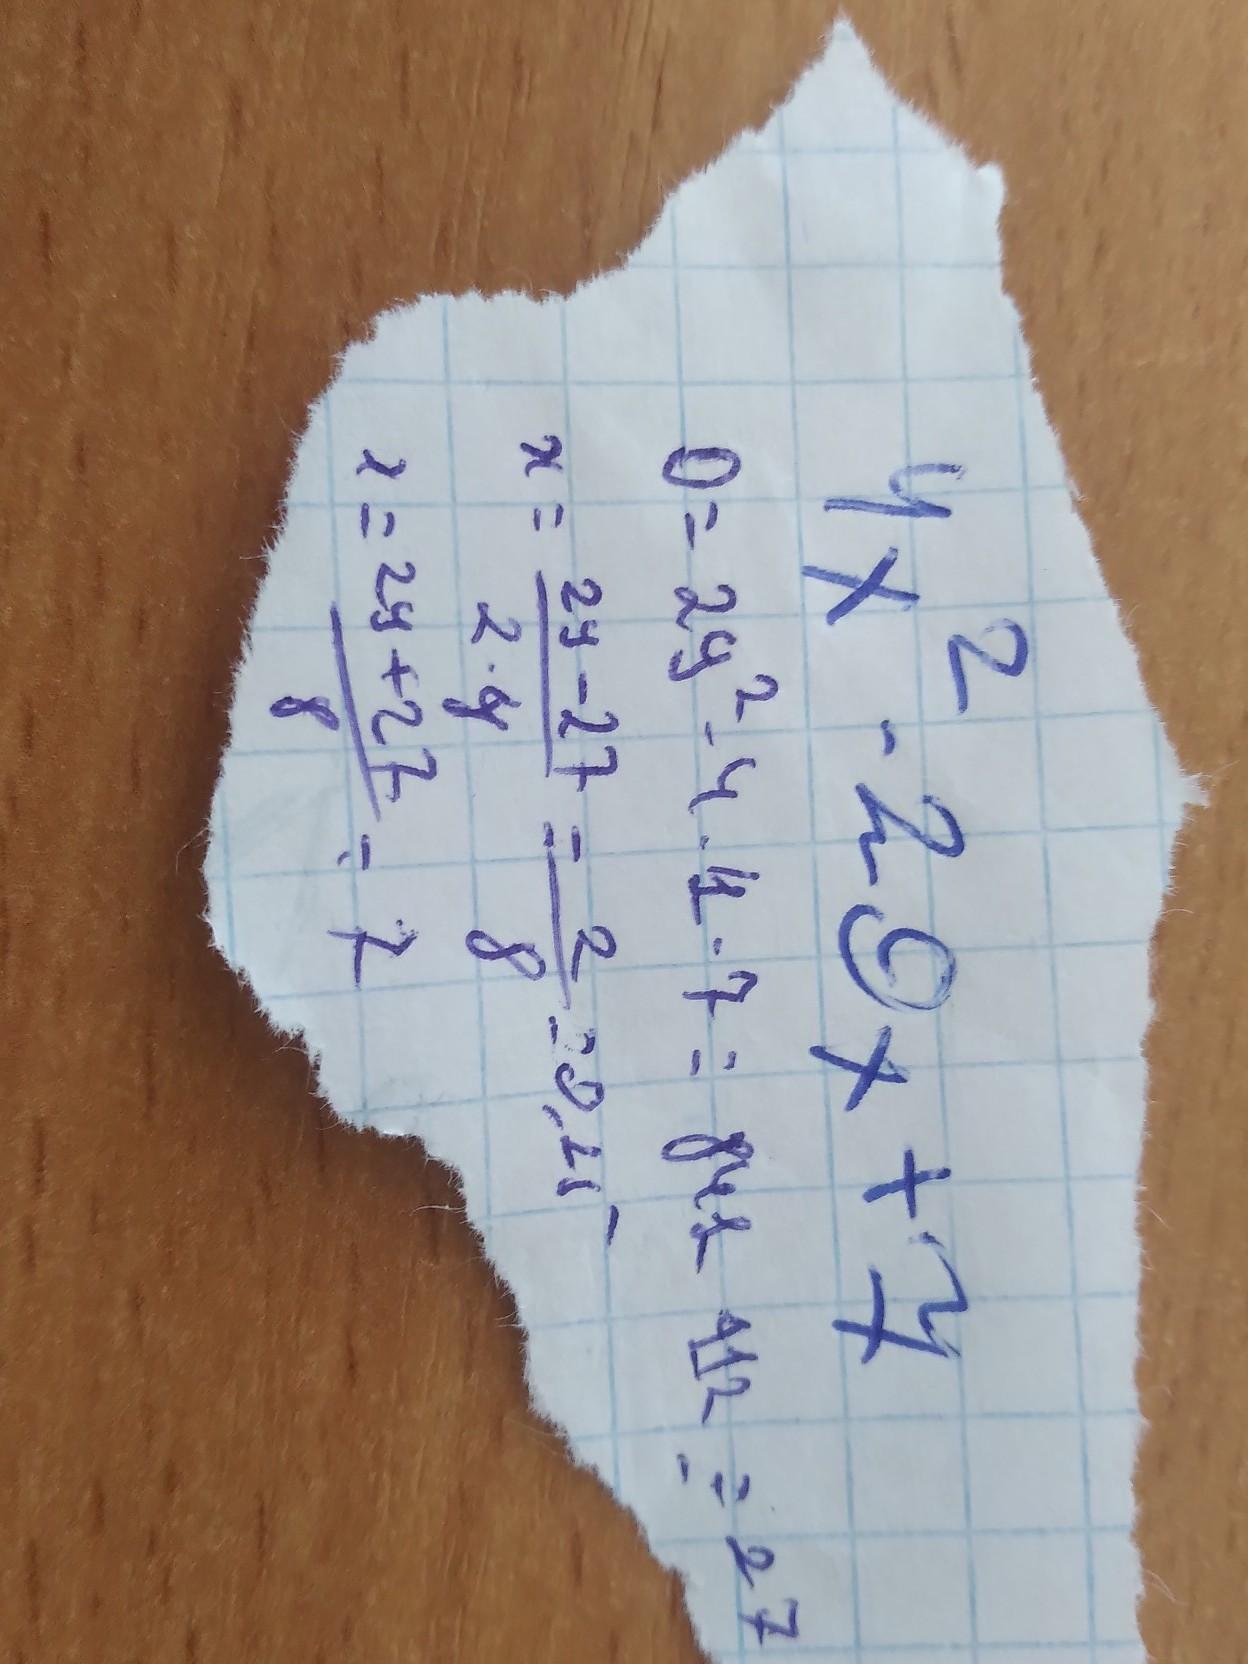 4x² - 29x + 7
D = 29² - 4 · 4 · 7 = 841 - 112 = 27
x = \frac{29 - 27}{2 · 4} = \frac{2}{8} = 0,25
x = \frac{29 + 27}{8} = 7